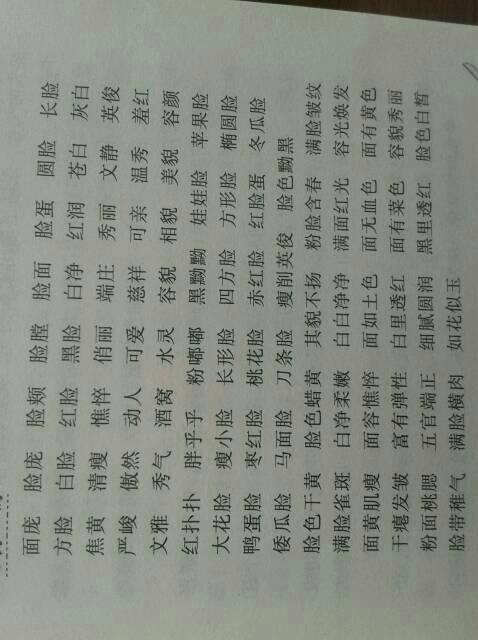 面庞 脸庞 脸颊 脸膛 脸面 脸蛋 圆脸 长脸
方脸 白脸 红脸 黑脸 白净 红润 苍白 灰白
焦黄 清瘦 憔悴 俏丽 端庄 秀丽 文静 英俊
严峻 傲然 动人 可爱 慈祥 可亲 温秀 羞红
文雅 秀气 酒窝 水灵 容貌 相貌 美貌 容颜
红扑扑 胖乎乎 粉嘟嘟 黑黝黝 娃娃脸 苹果脸
大花脸 瘦小脸 长形脸 四方脸 方形脸 椭圆脸
鸭蛋脸 枣红脸 桃花脸 赤红脸 红脸蛋 冬瓜脸
倭瓜脸 马面脸 刀条脸 瘦削英俊 脸色黝黑
脸色干黄 脸色蜡黄 其貌不扬 粉脸含春 满脸皱纹
满脸雀斑 白净柔嫩 白白净净 满面红光 容光焕发
面黄肌瘦 面容憔悴 面如土色 面无血色 面有黄色
干瘪发皱 富有弹性 白里透红 面有菜色 容貌秀丽
粉面桃腮 五官端正 细腻圆润 黑里透红 脸色白皙
脸带稚气 满脸横肉 如花似玉